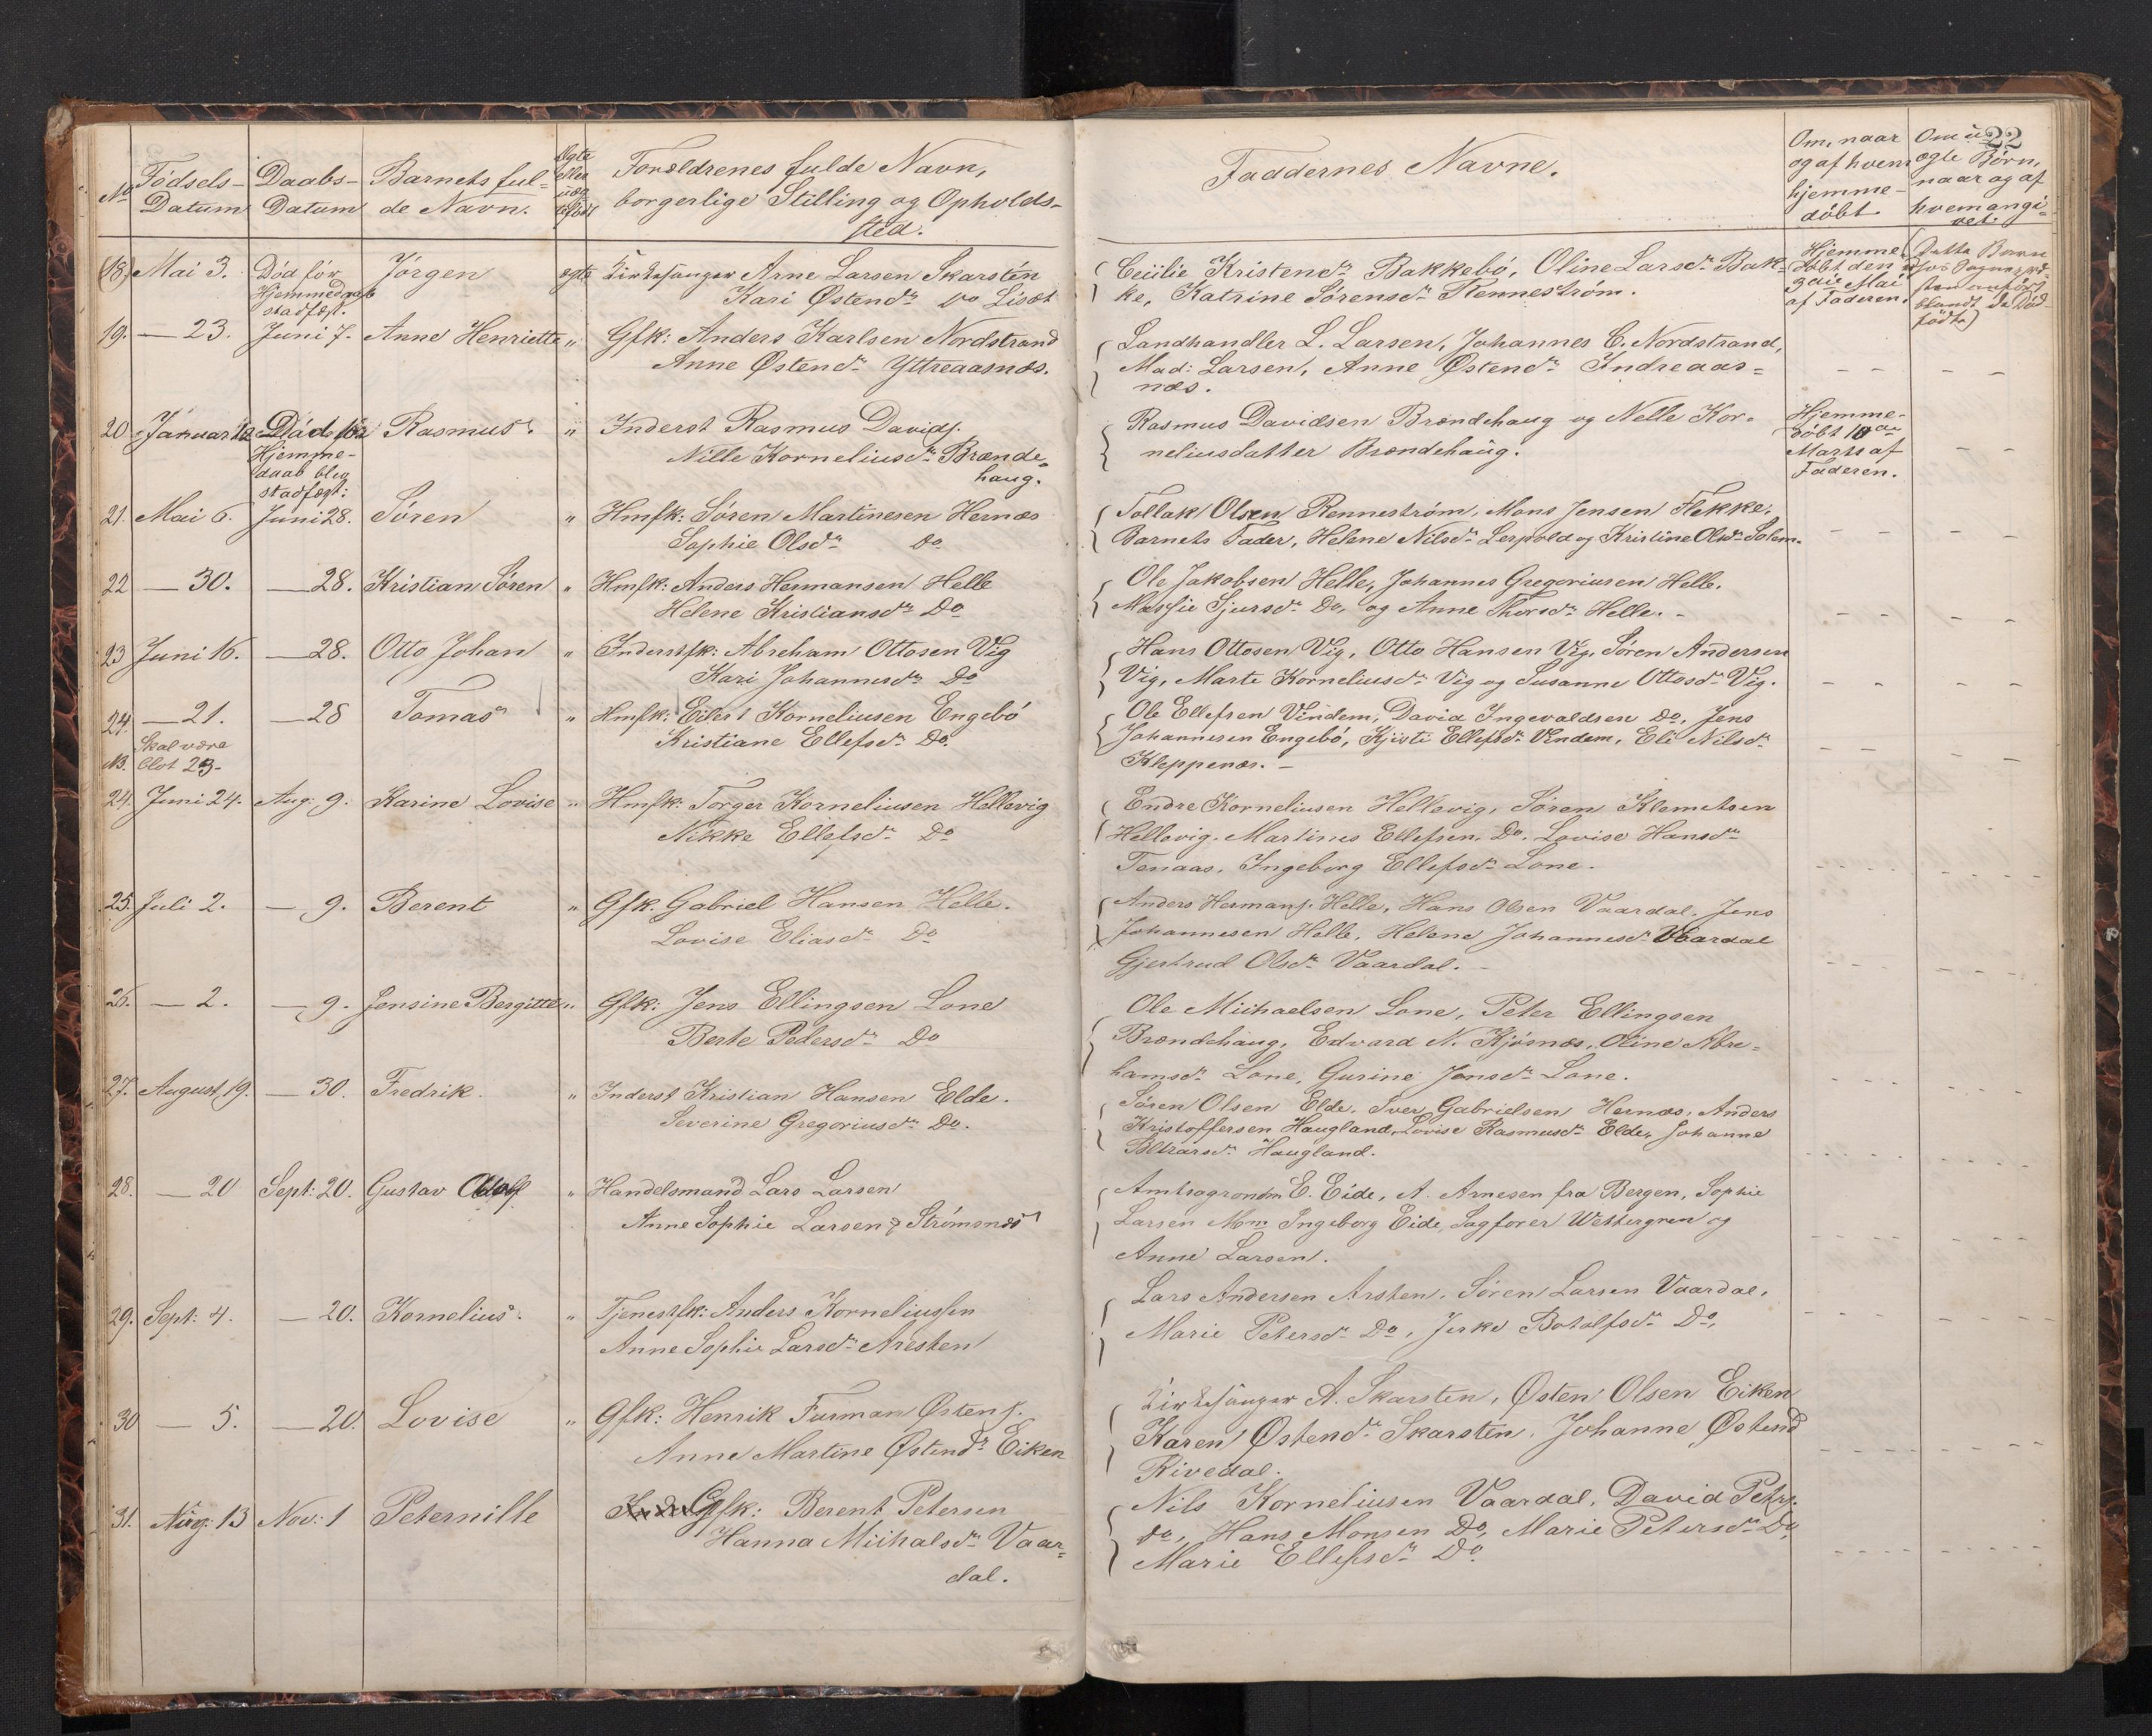 22
No Fødsels- Datum
Daabs- Datum
Barnets ful- de Navn.
Ægte eller uæg- tefødt
Forældrenes fulde Navn,
borgerlige Stilling og Opholds-
sted.
Faddernes Navne.
Om, naar og af hvem hjemme- døbt.
Om uægte Børn, naar og af hvem angi- vet.
(18) Mai 3. Død før Jørgen ægte Kirkesanger Arne Larsen Skarsten
Hjemmedaab Kari Østensdr Do Liset
stadfæst.
Cecilie Kristensdr Bakkebø, Oline Larsdr Bak-
ke, Katrine Sørensdr Renneström.
Hjemme-
døbt den
3die Mai
af Faderen.
(Dette Barn
blandt de Død-
fødte)
19. — 23. Juni 7. Anne Henriette " Gfk: Anders Karlsen Nordstrand
Anne Østensdr Yttreaasnæs.
Landhandler L. Larsen, Johannes C. Nordstrand,
Mad: Larsen, Anne Østensdr Indreaas-
næs.
20. Januar Død før Rasmus. " Inderst Rasmus Davids.
Hjemme- Nille Korneliusdr Brænde-
daab blev haug.
stadfæst:
Rasmus Davidsen Brændehaug og Nelle Kor-
neliusdatter Brændehaug.
Hjemme-
døbt 10de
Marts af
Faderen.
21. Mai 6. Juni 28. Søren " Hmfk: Søren Martinesen Hernæs
Sophie Olsdr Do
Tollak Olsen Renneström, Mons Jensen Flekke,
Barnets Fader, Helene Nilsdr Lerpold og Kristine Olsdr Solem.
22 — 30. — 28. Kristian Søren " Hmfk: Anders Hermansen Helle
Helene Kristiansdr Do
Ole Jakobsen Helle, Johannes Gregoriusen Helle.
Massie Sjursdr Do, og Anne Thorsdr Helle. -
23 Juni 16. — 28. Otto Johan " Inderstfk: Abreham Ottosen Vig
Kari Johannesdr Do
Hans Ottosen Vig, Otto Hansen Vig, Søren Andersen
Vig, Marte Korneliusdr Vig og Susanne Ottosdr Vig.
24. — 21. — 28 Tomas " Hmfk: Eilert Korneliusen Engebø
Kristiane Ellefsdr Do.
Skal være
NB. blot 23-
Ole Ellefsen Vindem, David Ingevaldsen Do, Jens
Johannesen Engebø, Kjisti Ellefsdr Vindem, Eli Nilsdr
Kleppenæs. -
24. Juni 24. Aug: 9. Karine Lovise " Hmfk: Torger Korneliusen Hellevig
Nikke Ellefsdr Do
Endre Korneliusen Hellevig, Søren Klemetsen
Hellevig. Martinus Ellefsen, Do. Lovise Hansdr
Tenaas, Ingeborg Ellefsdr Lone.
25. Juli 2. — 9. Berent " Gfk: Gabriel Hansen Helle.
Lovise Eliasdr Do
Anders Hermans. Helle, Hans Olsen Vaardal. Jens
Johannesen Helle, Helene Johannesdr Vaardal
Gjertrud Olsdr Vaardal. -
26. — 2. — 9. Jensine Bergitte " Gfk: Jens Ellingsen Lone
Berte Pedersdr Do
Ole Michaelsen Lone, Peter Ellingsen
Brændehaug, Edvard N. Kjøsnæs, Oline Abre-
hamsdr Lone, Gurine Jonsdr Lone.
27. August 19. — 30. Fredrik. " Inderst Kristian Hansen Elde.
Severine Gregoriusdr Do.
Søren Olsen Elde, Iver Gabrielsen Hernæs, Anders
Kristoffersen Haugland, Lovise Rasmusdr Elde, Johanne
Haugland.
28. — 20 Sept: 20. Gustav Adolf " Handelsmand Lars Larsen
Anne Sophie Larsen Strömsnæs
Amtsagronom E. Eide, A. Arnesen fra Bergen, Sophie
Larsen Ingeborg Eide, Sagfører Wettergren og
Anne Larsen.
29. Sept: 4. — 20. Kornelius. " Tjenestfk: Anders Korneliussen
Anne Sophie Larsdr Aresten
Lars Andersen Arsten, Søren Larsen Vaardal,
Marie Petersdr Do, Jerke Botolfsdr Do,
30 — 5. — 20. Lovise " Gfk: Henrik Furman Østens.
Anne Martine Østensdr Eiken
Kirkesanger A. Skarsten, Østen Olsen Eiken
Karen Østensdr Skarsten, Johanne Østensd
Rivedal.
31. Aug: 13 Nov: 1 Peternille Gfk: Berent Petersen
Hanna Michalsdr Vaar-
dal.
Nils Korneliusen Vaardal, David Peters.
do, Hans Monsen Do, Marie Petersdr Do,
Marie Ellefsdr Do.